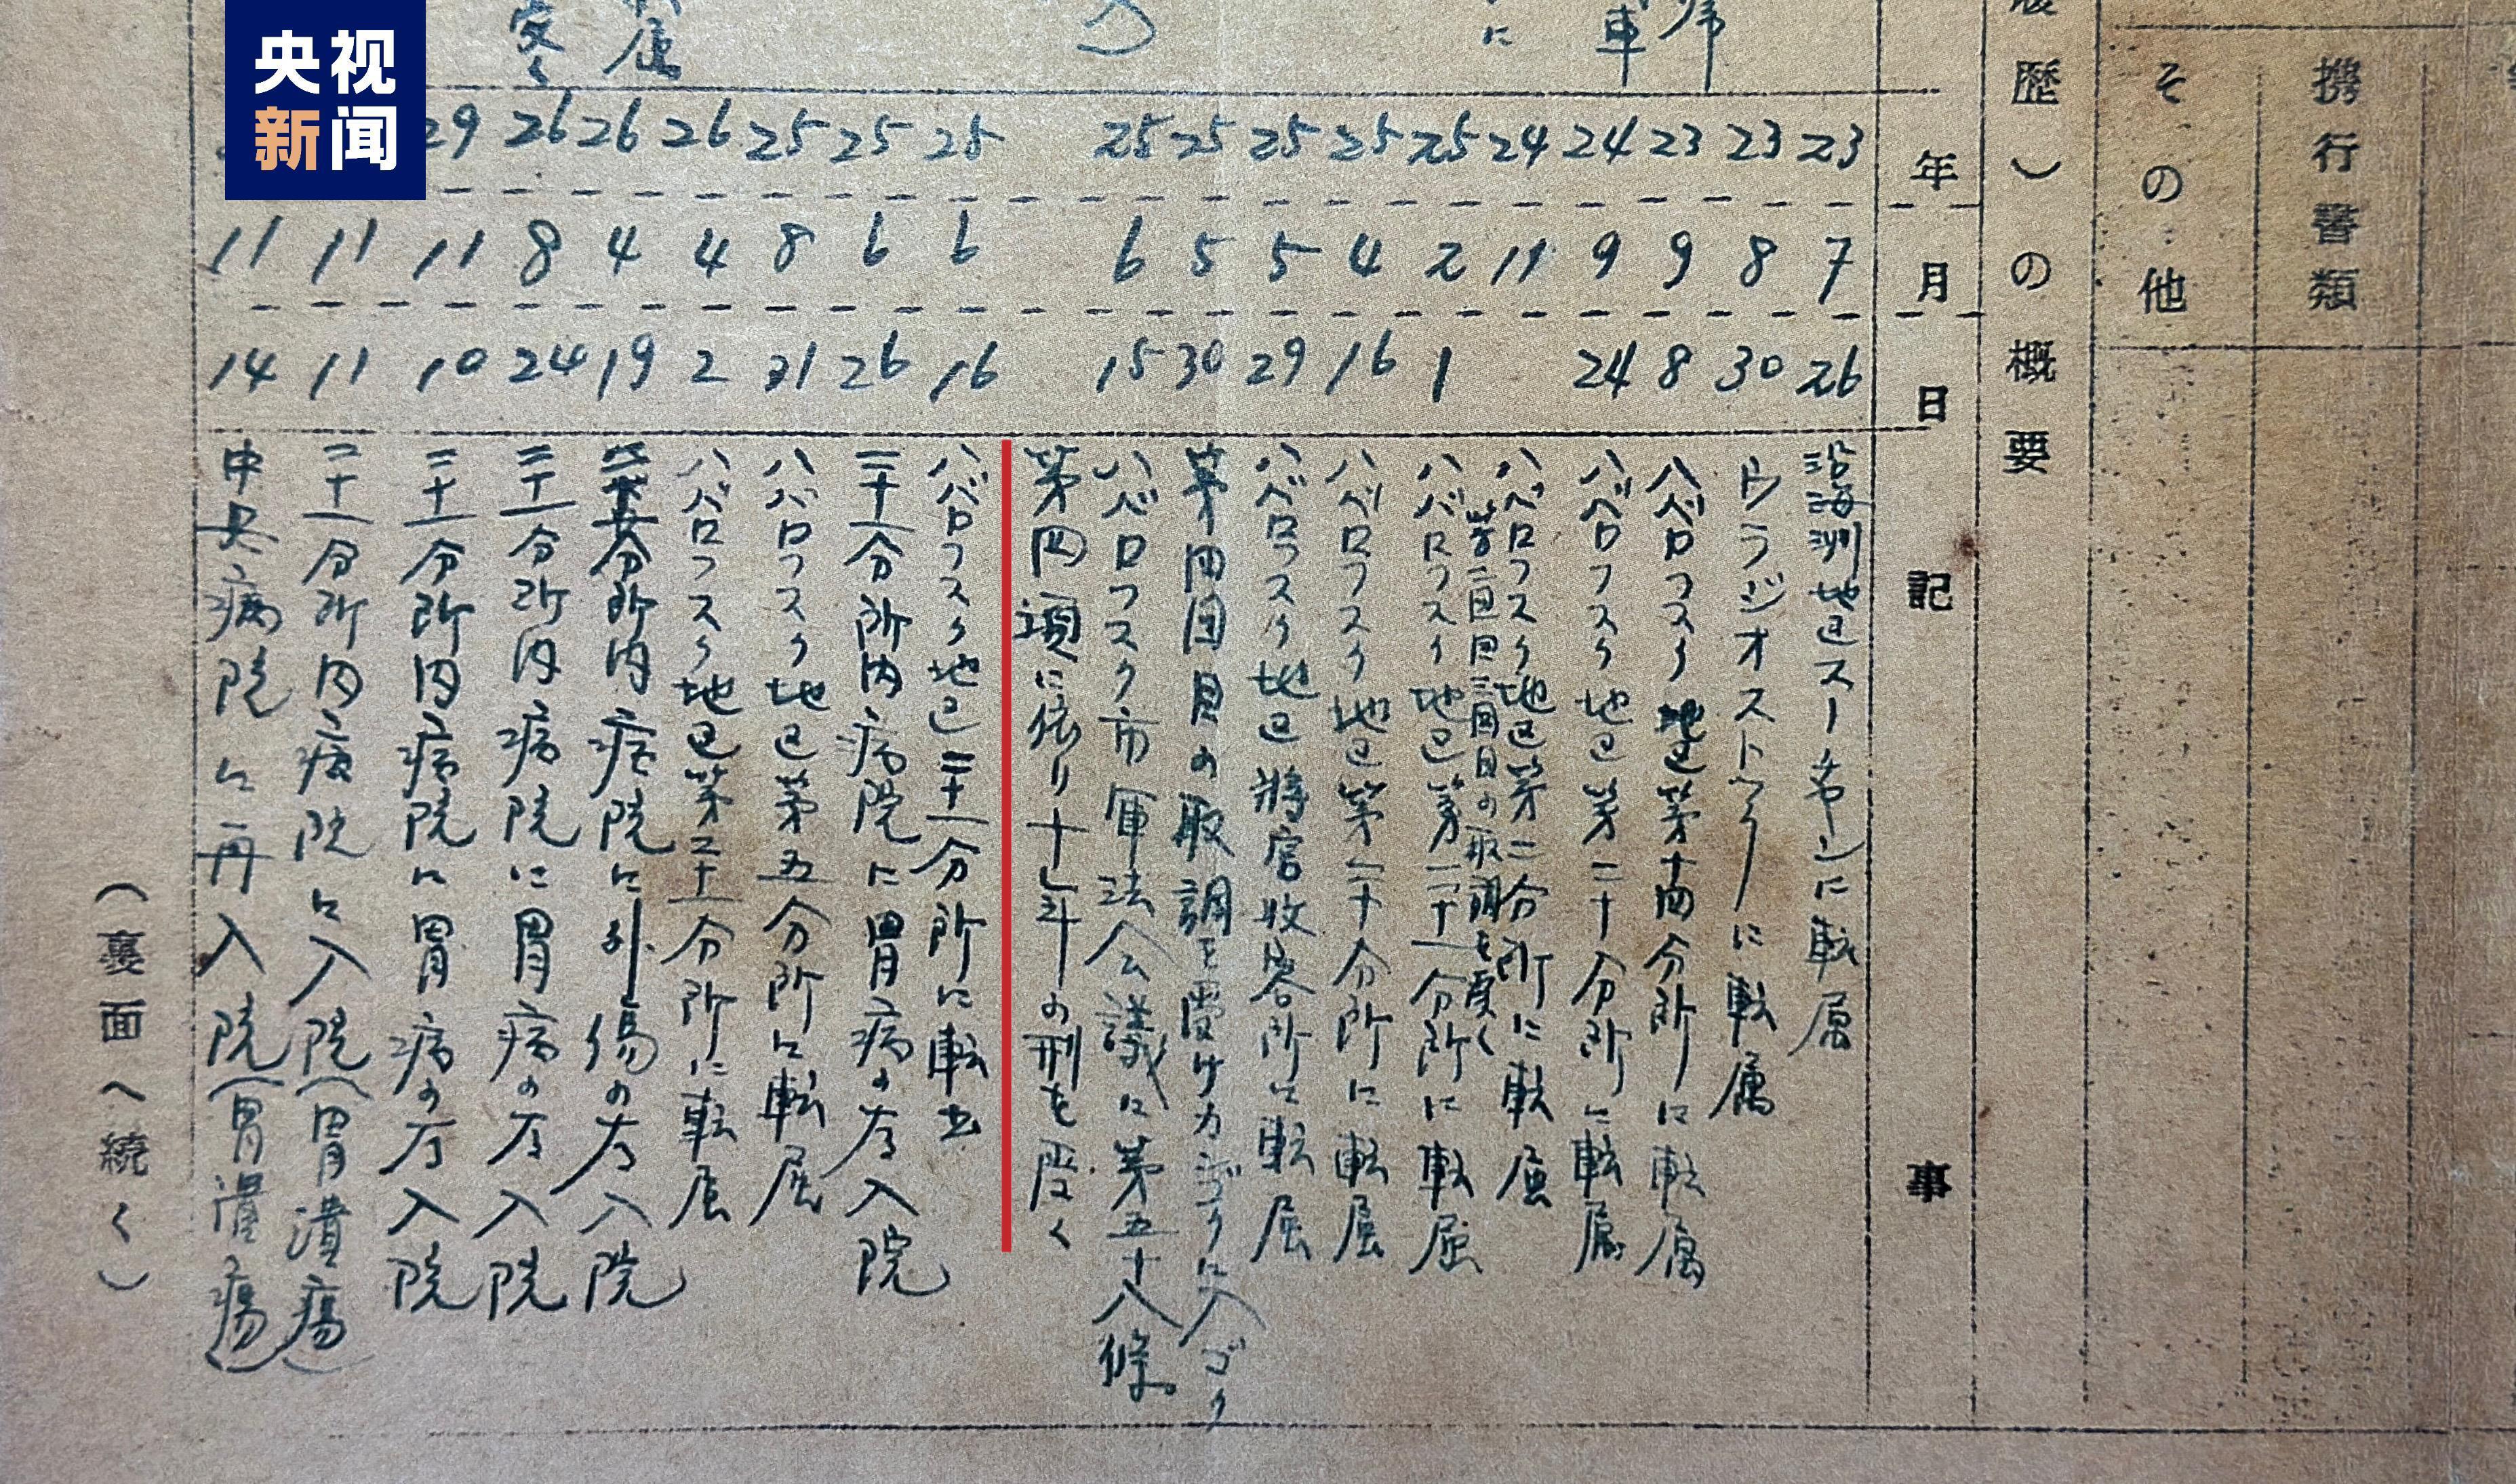 央视
新闻
携行書類
その他
歴)の概要
年 月 日 記事
23 7 26 沿海洲地区スーチヤンに転属
23 8 30 ウラジオストックに転属
23 9 8 ハバロフスク地区第十四分所に転属
24 9 24 ハバロフスク地区第二十分所に転属
24 11 ハバロフスク地区第二分所に転属
第二回三回目の取調を受く
25 2 1 ハバロフスク地区第二十一分所に転属
25 4 16 ハバロフスク地区第二十分所に転属
25 5 29 ハバロフスク地区将官收容所に転属
25 5 30 第四回目の取調を受けカンゴクに入ゴク
25 6 15 ハバロフスク市軍法会議に第五十八條
第四項に依り十年の刑を受く
25 6 16 ハバロフスク地区二十一分所に転出
25 6 26 二十一分所内病院に胃病の為入院
25 8 31 ハバロフスク地区第五分所に転属
26 4 2 ハバロフスク地区第二十一分所に転属
26 4 19 分所内病院に外傷の為入院
26 8 24 二十一分所内病院に胃病の為入院
29 11 10 二十一分所内病院に胃病の為入院
11 11 二十一分所内病院に入院(胃潰瘍)
11 14 中央病院に再入院(胃潰瘍)
(裏面へ続く)